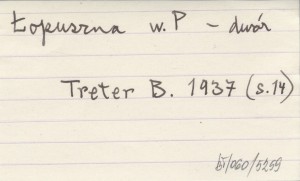 Łopuszna w. P - dwór
Treter B. 1937 (s.14)
bł/060/5259